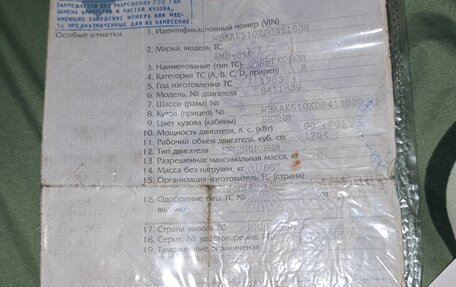 ЗАПРЕЩАЕТСЯ БЕЗ РАЗРЕШЕНИЯ РЭО ГАИ
ЗАМЕНА АГРЕГАТОВ И ЧАСТЕЙ КУЗОВА,
ИМЕЮЩИХ ЗАВОДСКИЕ НОМЕРА ИЛИ МЕС-
ТА ПРЕДНАЗНАЧЕННЫЕ ДЛЯ ИХ НАНЕСЕНИЯ.
Особые отметки
1. Идентификационный номер (VIN)
WBAAK510XD8411839
2. Марка, модель ТС
БМВ-318 I
3. Наименование (тип ТС) ЛЕГКОВОЙ
4. Категория ТС (A, B, C, D, прицеп) B
5. Год изготовления ТС 1983
6. Модель, № двигателя 8411839
7. Шасси (рама) №
8. Кузов (прицеп) № WBAAK510XD8411839
9. Цвет кузова (кабины) БЕЛЫЙ
10. Мощность двигателя, л. с. (кВт)
11. Рабочий объем двигателя, куб. см 1754
12. Тип двигателя БЕНЗИНОВЫЙ
13. Разрешенная максимальная масса, кг
14. Масса без нагрузки, кг
15. Организация-изготовитель ТС (страна)
16. Одобрение типа ТС №
выдано
17. Страна вывоза ТС
18. Серия, № удостоверения,
19. Таможенные ограничения